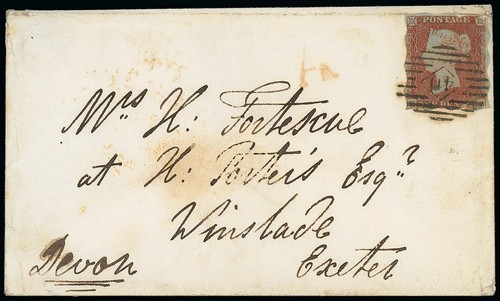 POSTAGE
Mrs H: Fortescue
at H: Porter's Esqr.
Winslade
Devon Exeter